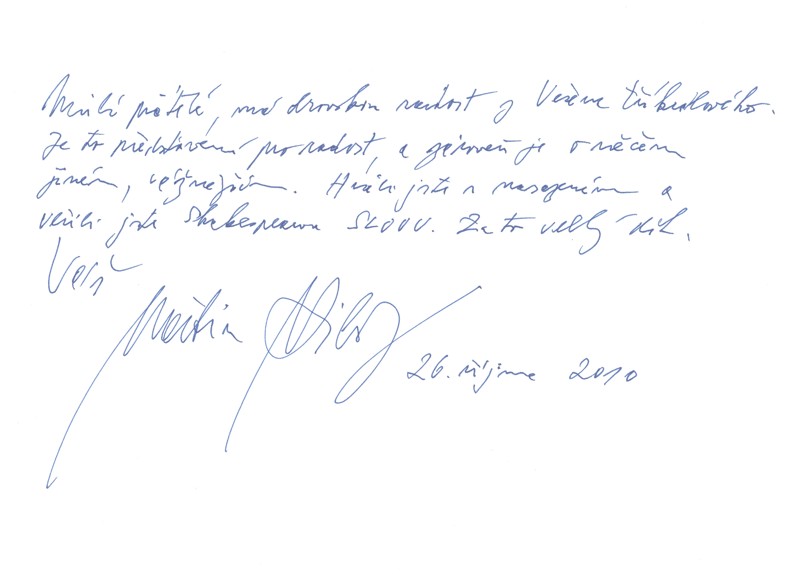 Milí přátelé, mám obrovskou radost z Večera tříkrálového.
Je to představení pro radost, a zároveň je o něčem
jiném, vážnějším. Hráli jste s nasazením a
věřili jste Shakespearovu SLOVU. Za to velký dík.
Váš
Martin Hilský
26. října 2010